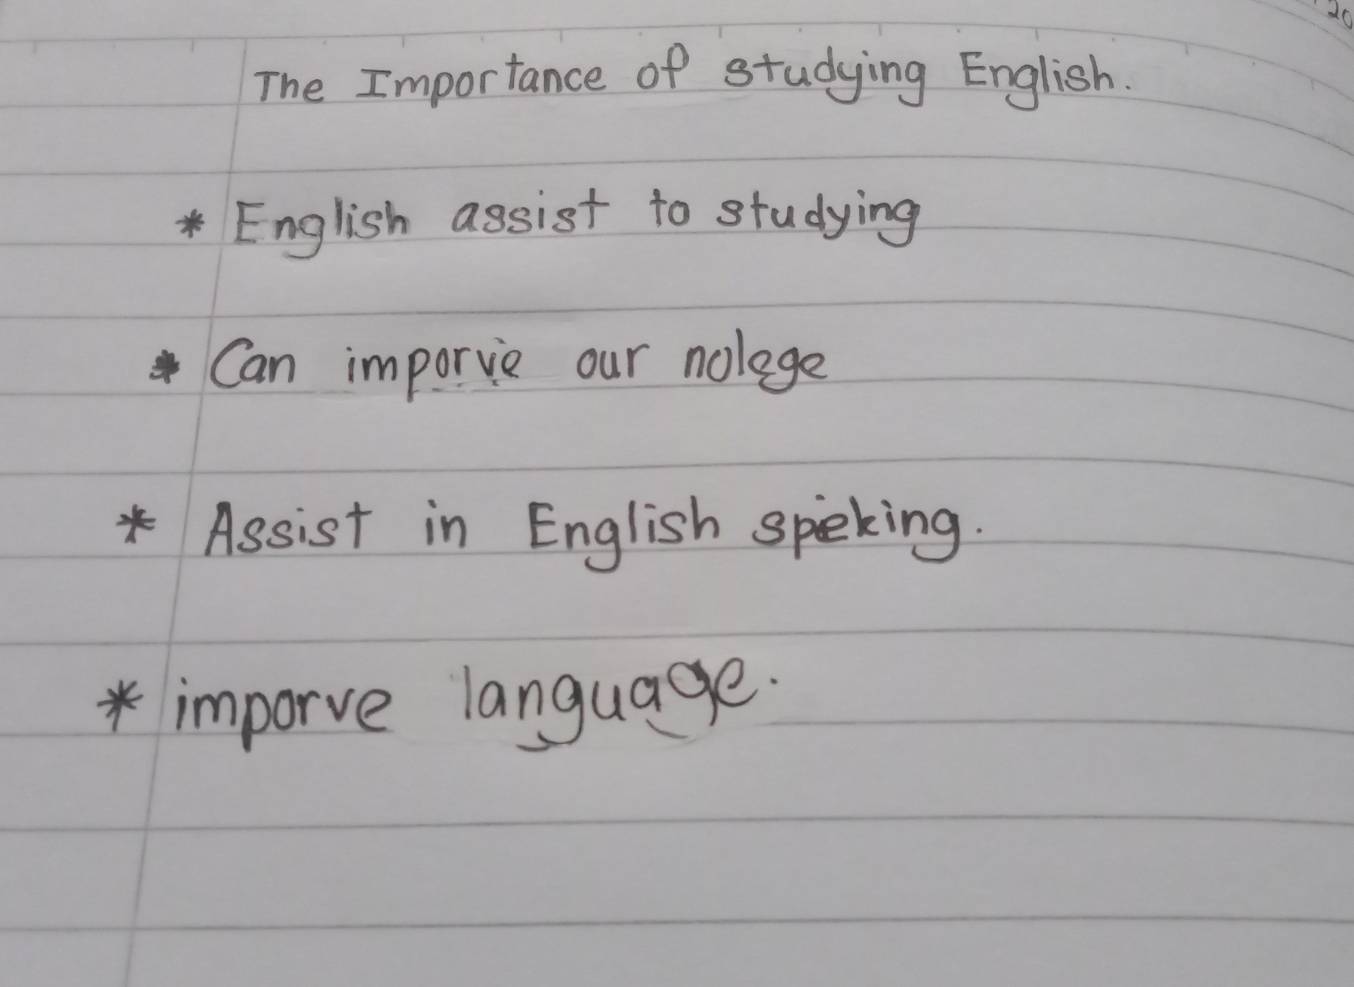 20
The Importance of studying English.
* English assist to studying
* Can imporve our nolege
* Assist in English speking.
* imporve language.